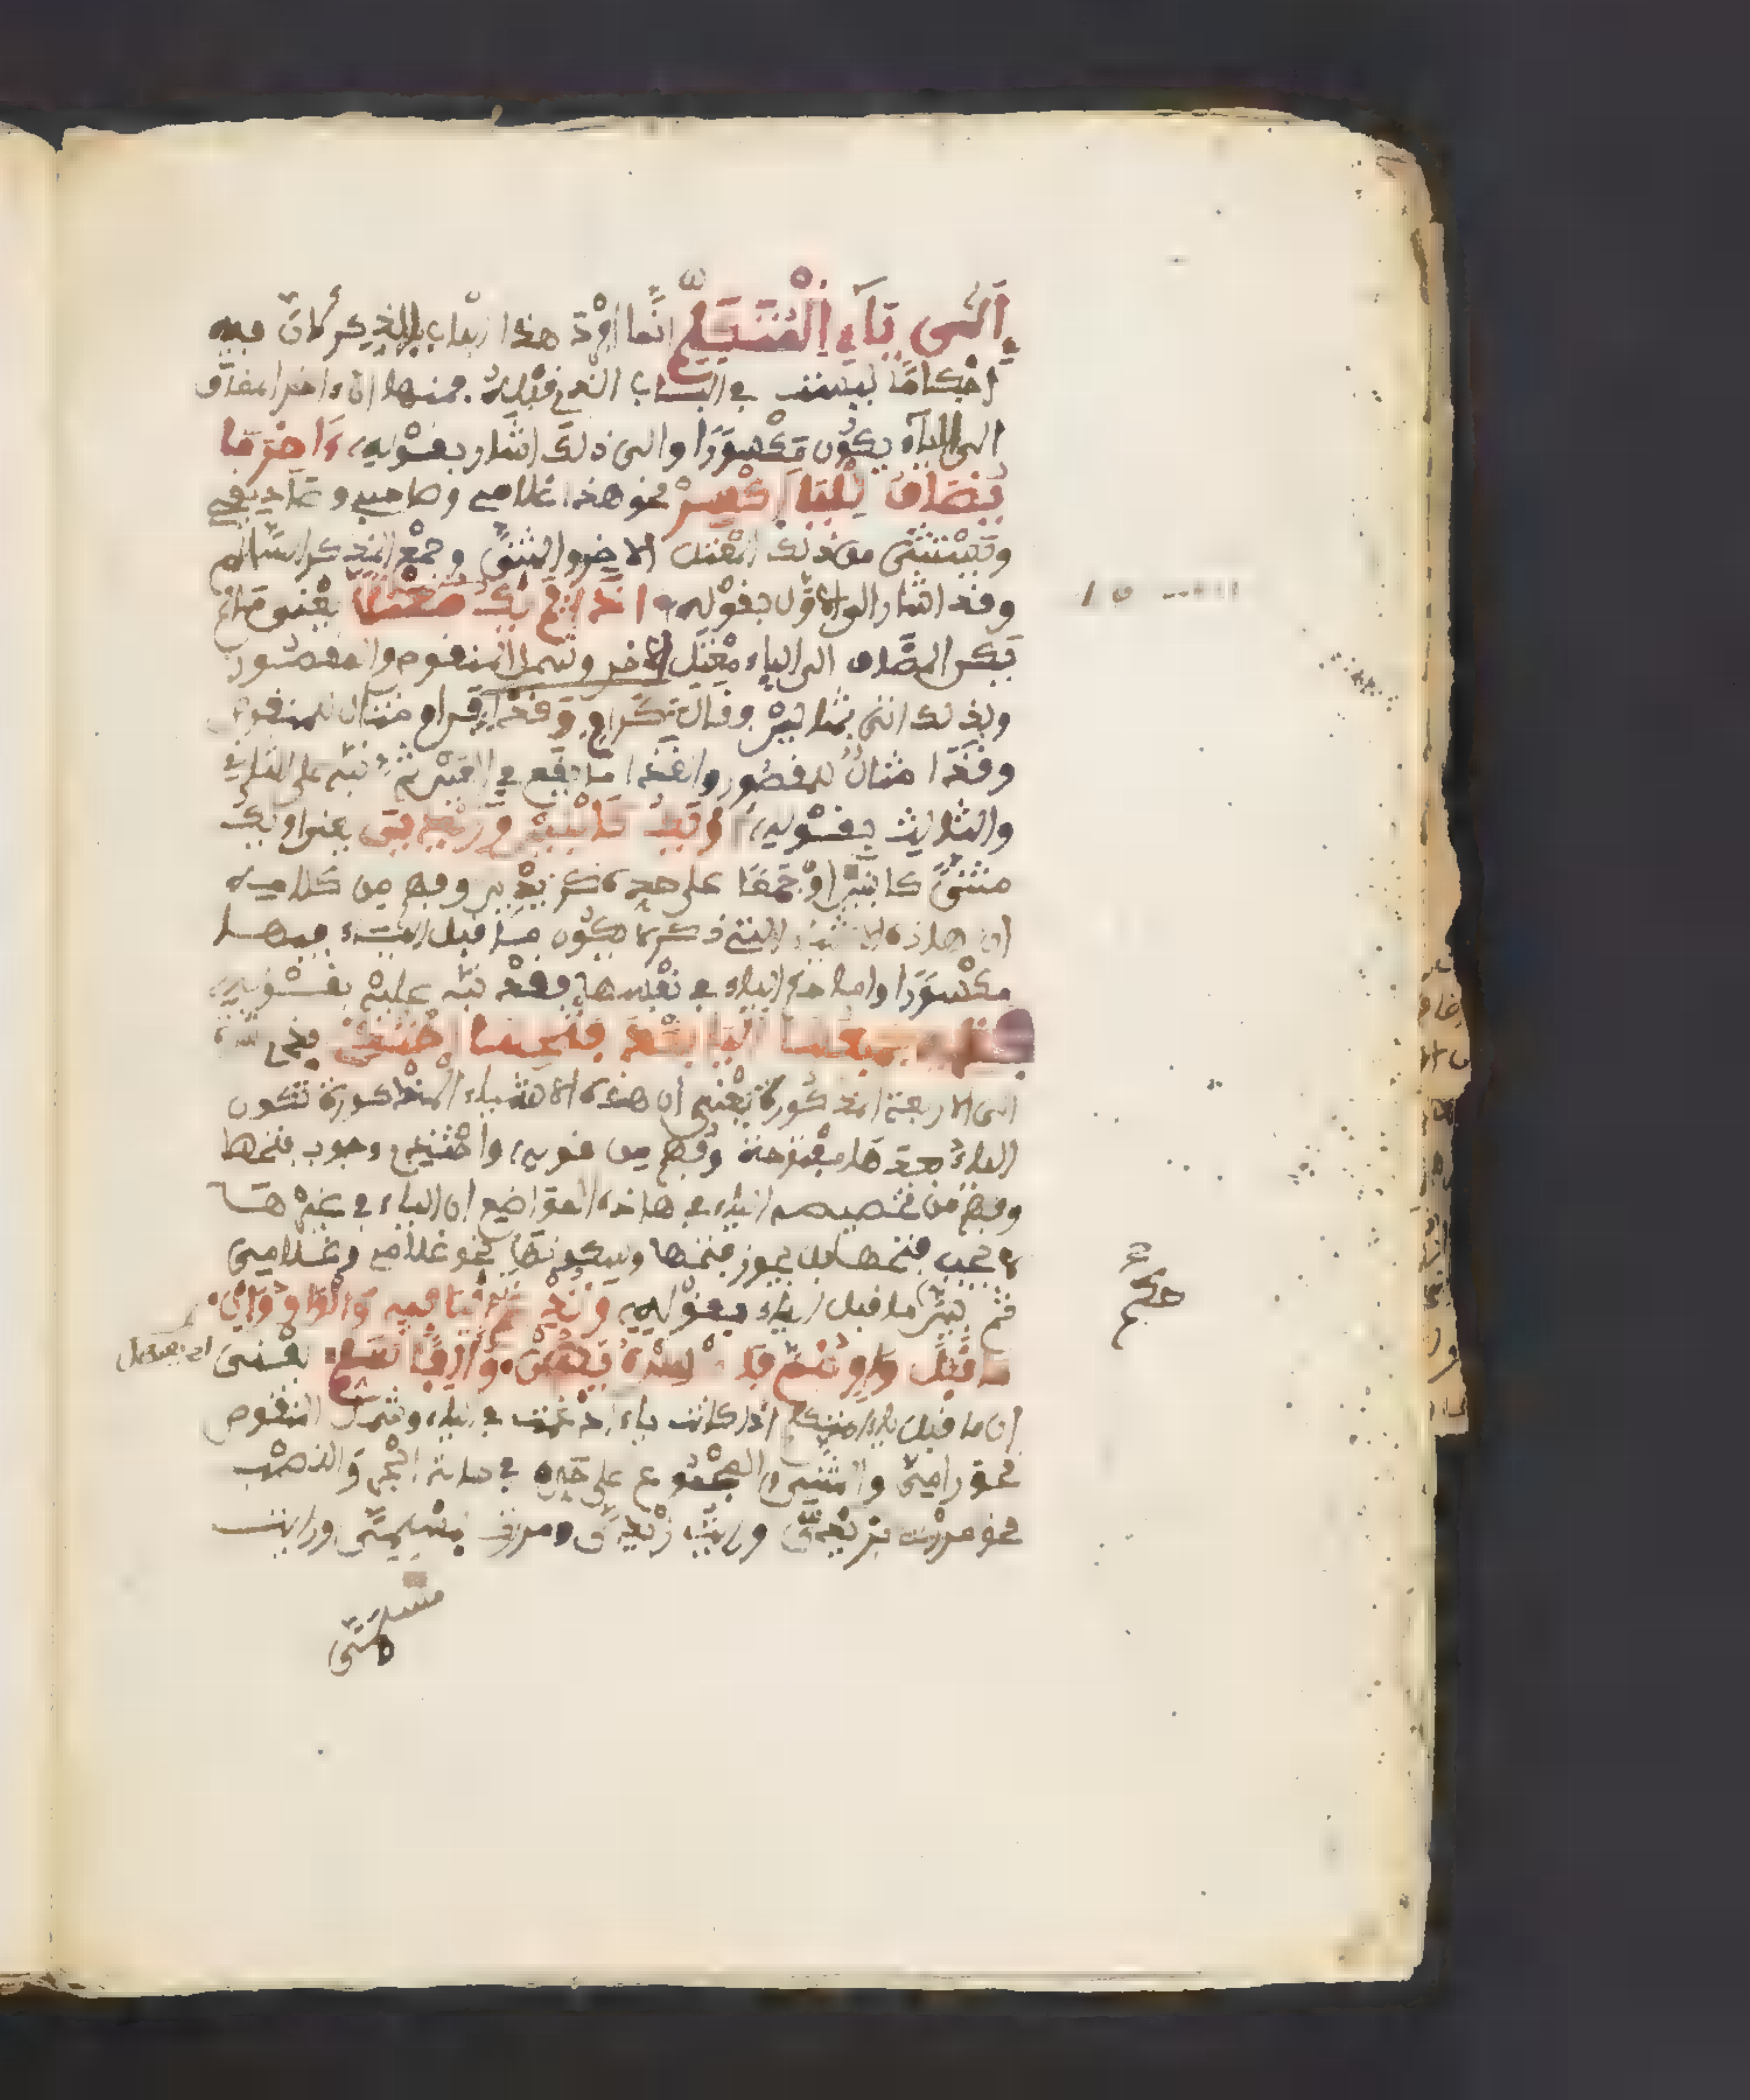 إلى ياء المتكلم إنما أفرد هذا الباب بالذكر لأن فيه
أحكاما ليست في الباب الذي قبله فمنها ان ءاخر المضاف
الى الياء يكون مكسورا والى ذلك اشار بقوله وءاخر ما
يضاف لليا اكسر نحو هذا غلامي وصاحبي و
ويستثنى من ذلك المعتل الاخر والمثنى وجمع المذكر السالم
وقد اشار الى الاول بقوله اذا لم يك معتلا يعني ما لم
يكن المضاف الى الياء معتل الاخر وشمل المنقوص والمقصور
ولذلك اتى بمثالين وقال كرام وقذا فرام مثال للمنقوص
وقذا مثال للمقصور والقذا ما يقع في العين ثم نبه على الثاني
والثالث بقوله او يك كابنين وزيدين يعني او يك
مثنى كابنين او جمعا على حده كزيدين وفهم من كلامه
ان هاذه الاشياء التي ذكر لا يكون ما قبل الياء فيها
مكسورا واما حكم الياء في نفسها فقد نبه عليه بقوله
فذي جميعها اليا بعد فتحها احتذي فذي
الى الاربعة المذكورة يعني ان هذه الاشياء المذكورة تكون
الياء بعدها مفتوحة وفهم من قوله واحتذي وجوب فتحها
وفهم من تخصيصه الياء في هاذه المواضع ان الياء في غيرها
لا يجب فتحها بل يجوز فتحها وسكونها نحو غلامي وغلامي
ثم بين ما قبل الياء بقوله وتدغم اليا فيه والواو وان
ما قبل واو ضم فاكسره يهن وألفا سلم يعني
ان ما قبل ياء المتكلم اذا كانت ياء ادغمت في الياء وشمل المنقوص
نحو رامي والمثنى والمجموع على حده في حالة الجر والنصب
نحو مررت بزيدي ورايت زيدي ومررت بمسلمي ورايت
مسلمي
حكم